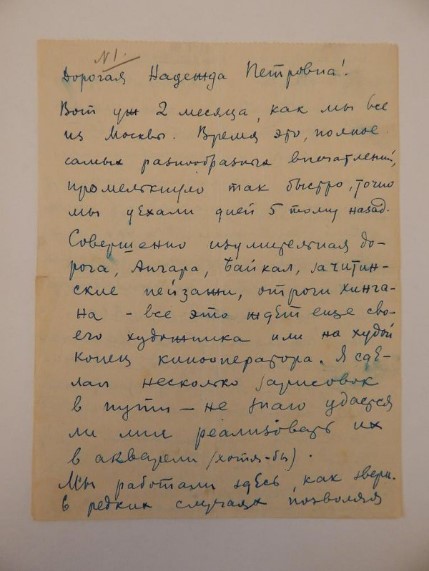 N1.
Дорогая Надежда Петровна!
Вот уж 2 месяца, как мы все
из Москвы. Время это, полное
самых разнообразных впечатлений,
промелькнуло так быстро, точно
мы уехали дней 5 тому назад.
Совершенно изумительная до-
рога, Ангара, Байкал, зачитин-
ские пейзажи, отроги Хинга-
на - все это ждет еще сво-
его художника или на худой
конец кинооператора. Я сде-
лал несколько зарисовок
в пути - не знаю удастся
ли мне реализовать их
в акварели (хотя-бы).
Мы работали здесь, как звери.
В редких случаях позволяя